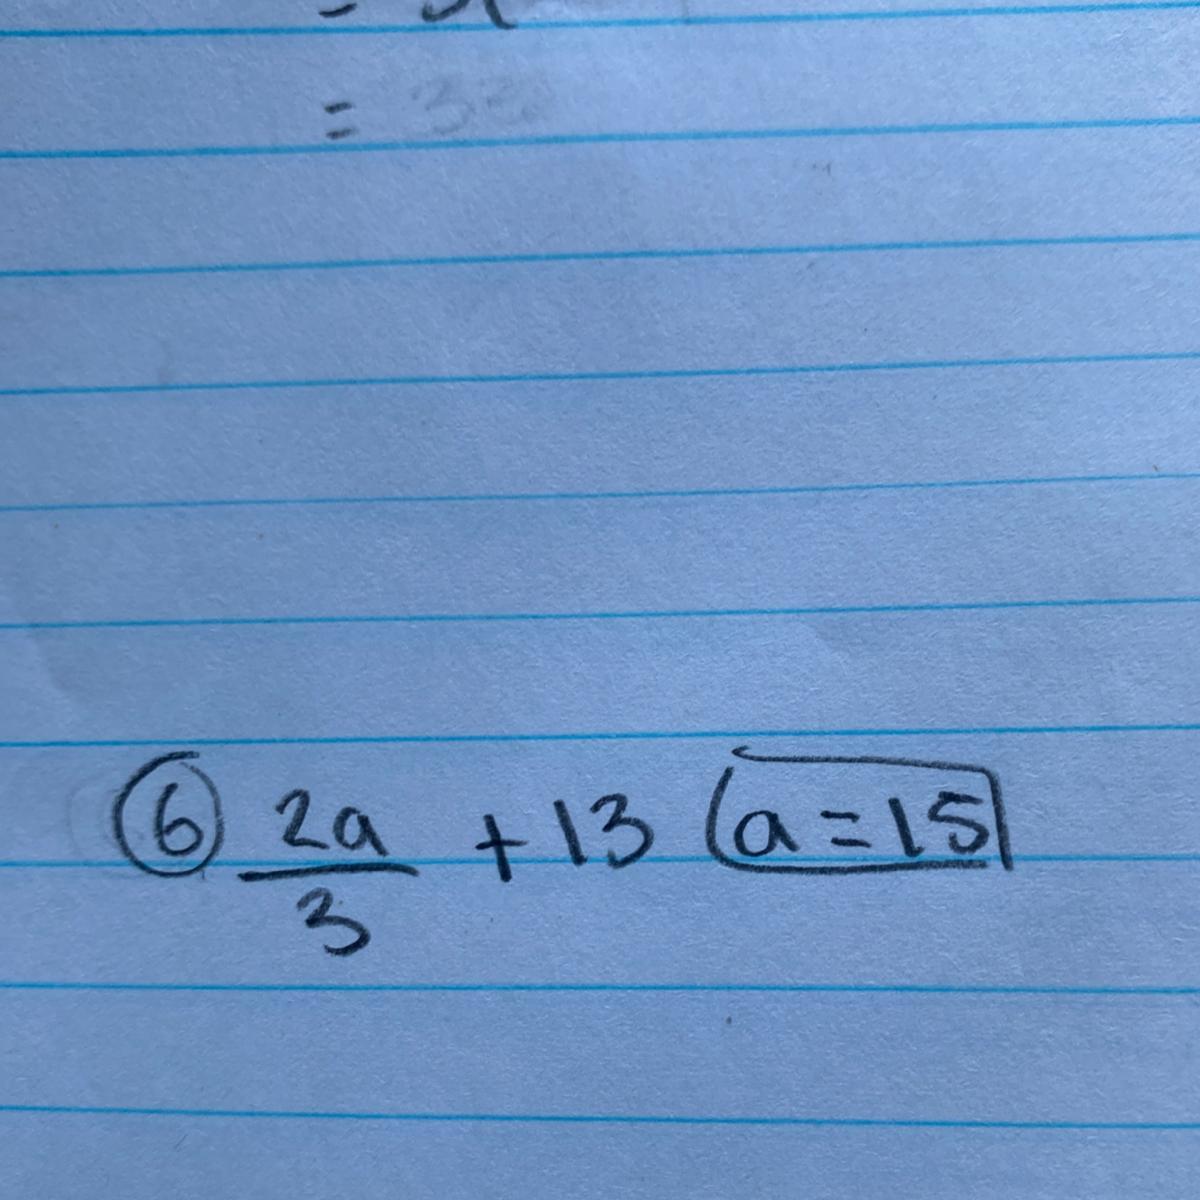 =
⑥ 2a/3 + 13 a = 15